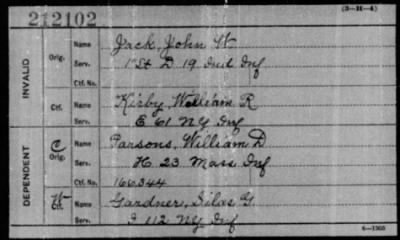 212102
(3-H-4)
INVALID
Orig.
Name
Jack, John W
Serv.
1st D 19 Ind Inf
Ctf. No.
Ctf.
Name
Kirby, William R
Serv.
E 61 NY Inf
DEPENDENT
C
Orig.
Name
Parsons, William D
Serv.
H. 23 Mass Inf
Ctf. No.
166344
Name
Gardner, Silas G
Serv.
I 112 NY Inf